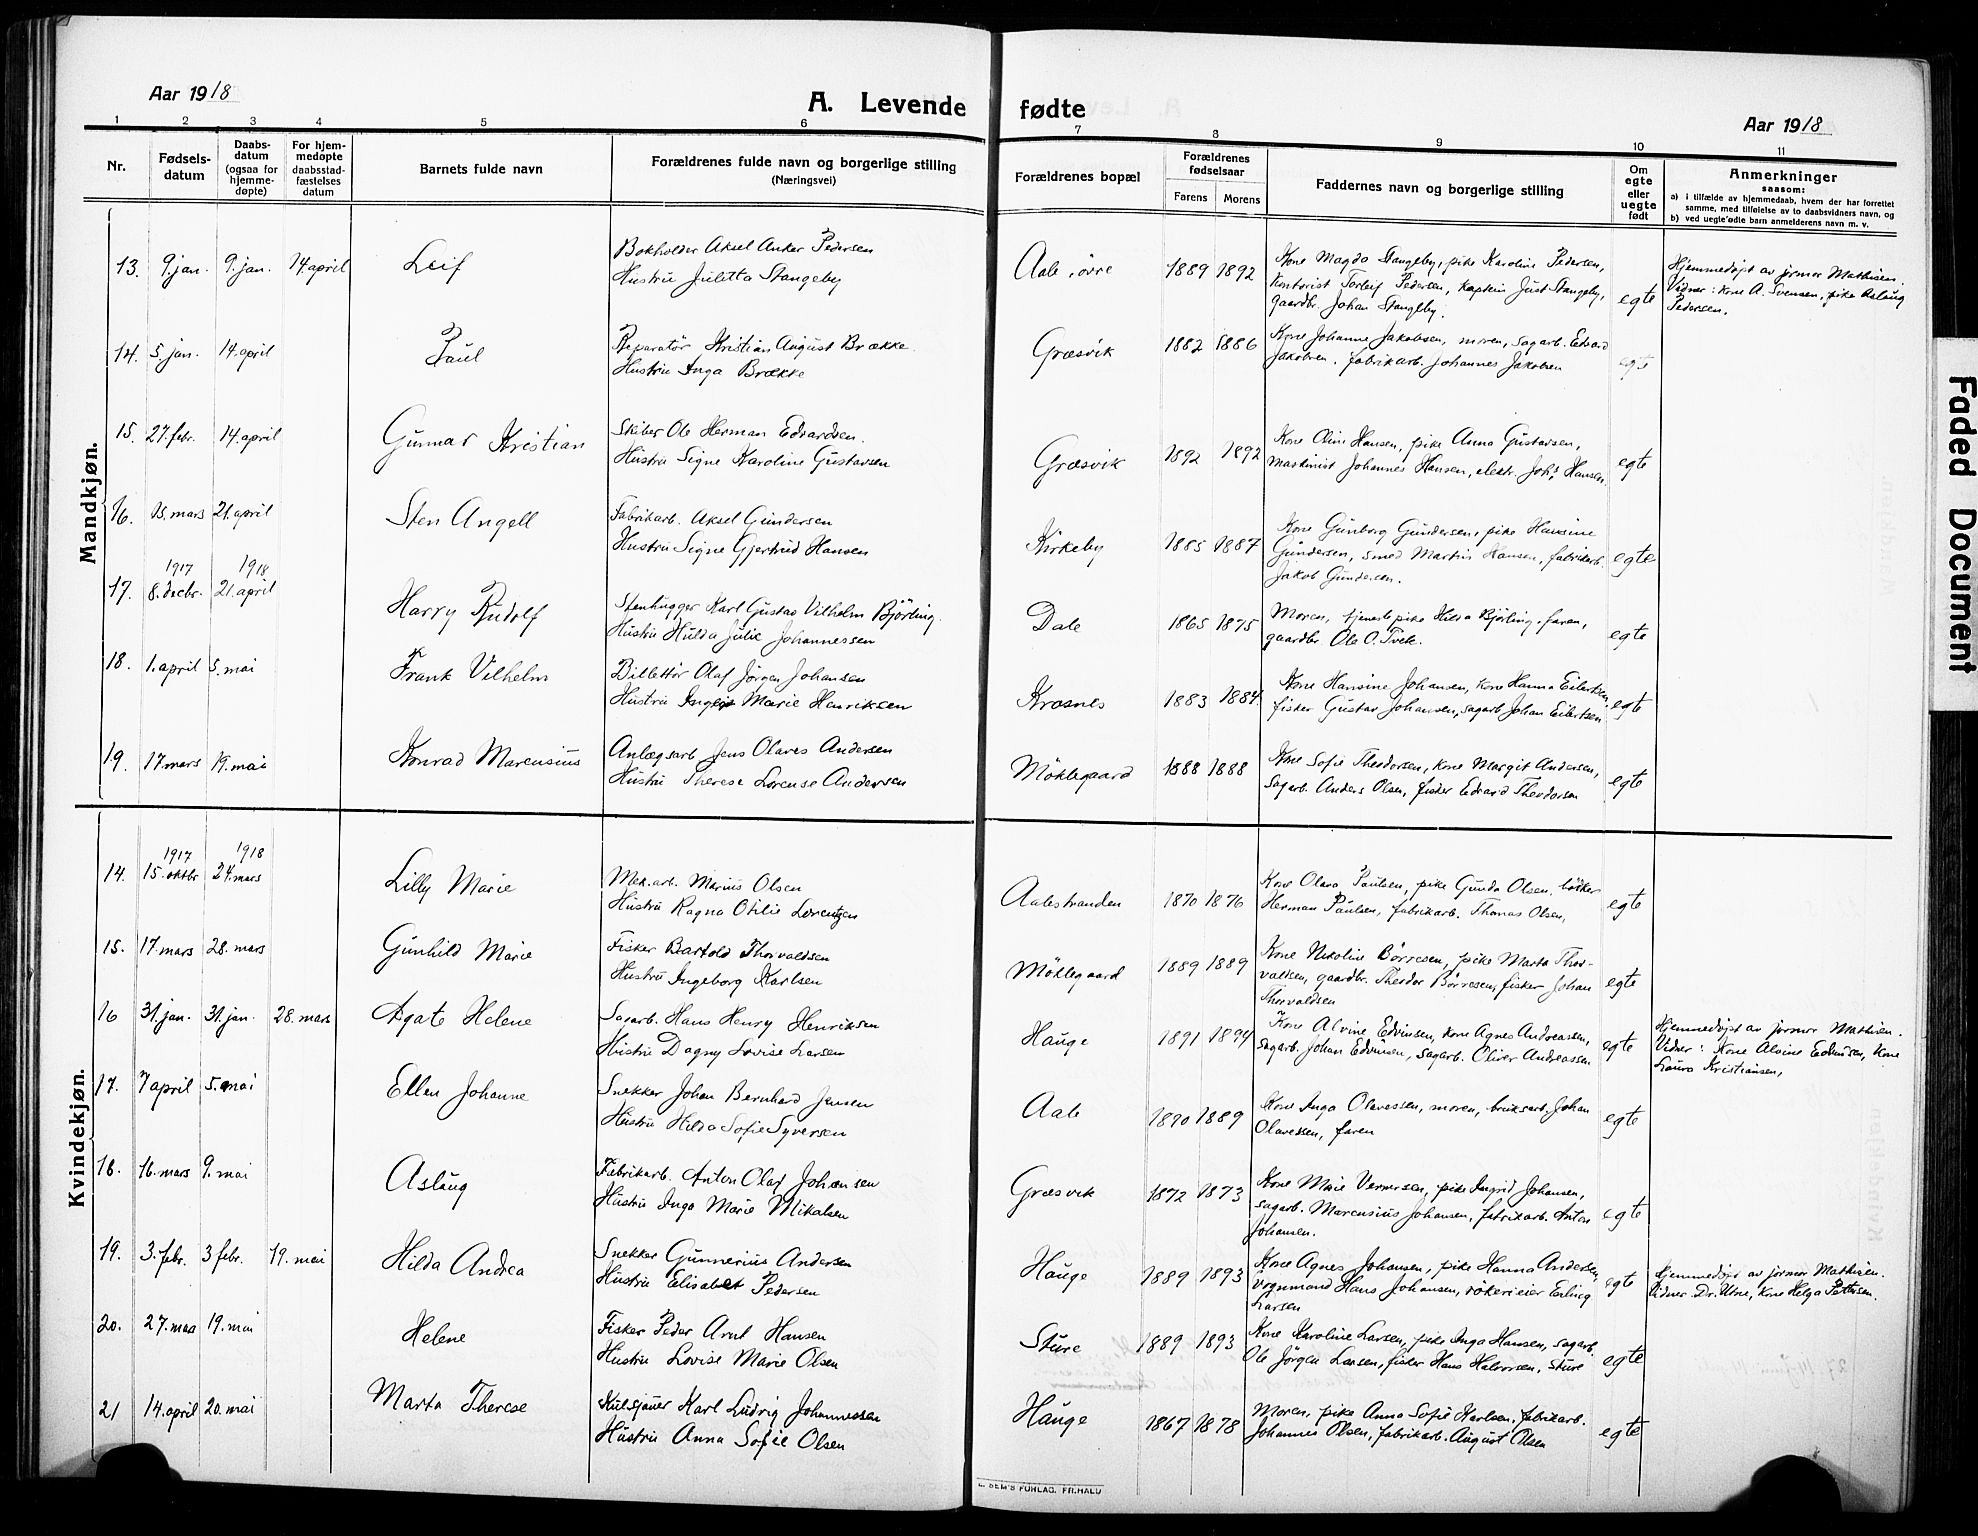 Aar 1918
A. Levende fødte
Aar 1918
1 2 3 4 5 6 7 8 9 10 11
Nr.
Fødsels-
datum
Daabs-
datum
(ogsaa for
hjemme-
døpte)
For hjem-
medøpte
daabsstad-
fæstelses
datum
Barnets fulde navn
Forældrenes fulde navn og borgerlige stilling
(Næringsvei)
Forældrenes bopæl
Forældrenes
fødselsaar
Farens Morens
Faddernes navn og borgerlige stilling
Om
egte
eller
uegte
født
Anmerkninger
saasom:
a) i tilfælde av hjemmedaab, hvem der har forrettet
samme, med tilføielse av to daabsvidners navn, og
b) ved uegtefødte barn anmelderens navn m. v.
Mandkjøn.
13. 9. jan. 9. jan. 14 april Leif
Bokholder Aksel Anker Pedersen
Hustru Juletta Stangeby
Aale øvre 1889 1892
Kone Magda Stangeby, pike Karoline Pedersen,
Kontorist Torleif Pedersen, kaptein Just Stangeby,
gaardbr. Johan Stangeby.
egte
Hjemmedøpt av jormor Mathisen.
Vidner: Kone A. Svensen, pike Aslaug
Pedersen.
14. 5. jan. 14. april Paul
Reparatør Kristian August Brække
Hustru Inga Brække
Græsvik 1882 1886
Kone Johanne Jakobsen, moren, sagarb. Edvard
Jakobsen, fabrikarb. Johannes Jakobsen
egte
15. 27. febr. 14. april Gunnar Kristian
Skiber Ole Herman Edvardsen.
Hustru Signe Karoline Gustavsen
Græsvik 1892 1892
Kone Oline Hansen, pike Anna Gustavsen,
maskinist Johannes Hansen, elektr. Johs. Hansen.
egte
16. 15. mars 21. april Sten Angell
Fabrikarb. Aksel Gundersen
Hustru Signe Gjertrud Hansen
Kirkeby 1885 1887
Kone Gunborg Gundersen, pike Hansine
Gundersen, smed Martin Hansen, fabrikarb.
Jakob Gundersen.
egte
1917 1918
17. 8. decbr. 21. april Harry Rudolf
Stenhugger Karl Gustav Vilhelm Björling.
Hustru Hulda Julie Johannessen
Dale 1865 1875
Moren, tjenestepike Hilda Björling, faren,
gaardbr. Ole O. Tvete.
egte
18. 1. april 5. mai Frank Vilhelm
Billettör Olaf Jørgen Johansen
Hustru Inger Marie Henriksen
Krosnes 1883 1884
Kone Hansine Johansen, kone Hanna Eilertsen,
fisker Gustav Johansen, sagarb. Johan Eilertsen
egte
19. 17. mars 19. mai Konrad Marensius
Anlægsarb. Jens Olaves Andersen
Hustru Therese Lorense Andersen
Möklegaard 1888 1888
Kone Sofie Theodorsen, kone Margit Andersen,
Sagarb. Anders Olsen, fisker Edvard Theodorsen
egte
Kvindekjøn.
1917 1918
14. 15. oktbr 24. mars Lilly Marie
Mek.arb. Marius Olsen
Hustru Ragna Otilie Lorentzen
Aalestranden 1870 1876
Kone Olava Paulsen, pike Gunda Olsen, bödker
Herman Paulsen, fabrikarb. Thomas Olsen,
egte
15. 17. mars 28. mars Gunhild Marie
Fisker Bartold Thorvaldsen
Hustru Ingeborg Karlsen
Möklegaard 1889 1889
Kone Nikoline Börresen, pike Marta Thor-
valdsen, gaardbr. Theodor Börresen, fisker Johan
Thorvaldsen
egte
16 31. jan. 31. jan. 28. mars Agate Helene
Sagarb. Hans Henry Henriksen
Hustru Dagny Lovise Larsen
Hauge 1891 1894
Kone Alvine Edvinsen, kone Agnes Andreassen,
sagarb. Johan Edvinsen, sagarb. Oliver Andreassen
egte
Hjemmedøpt av jormor Mathisen.
Vidner: Kone Alvine Edvinsen, Kone
Laura Kristiansen,
17. 7 april 5. mai Ellen Johanne
Snekker Johan Bernhard Jensen
Hustru Hilda Sofie Syversen
Aale 1890 1889
Kone Inga Olavessen, moren, bruksarb. Johan
Olavessen, faren
egte
18. 16. mars 9. mai Aslaug
Fabrikarb. Anton Olaf Johansen
Hustru Inga Marie Mikalsen
Græsvik 1872 1873
Kone Marie Vernersen, pike Ingrid Johansen,
sagarb. Marensius Johansen, fabrikarb. Anton
Johansen.
egte
19. 3. febr. 3 febr. 19. mai Hilda Andrea
Snekker Gunnerius Andersen
Hustru Elisabet Pedersen
Hauge 1889 1893
Kone Agnes Johansen, pike Hanna Andersen,
vognmand Hans Johansen, rökerieier Erling
Larsen
egte
Hjemmedøpt av jormor Mathisen.
Vidner: Dr. Utne, Kone Helga Pettersen.
20. 27. mars 19. mai Helene
Fisker Peder Arnt Hansen
Hustru Lovise Marie Olsen
Sture 1889 1893
Kone Karoline Larsen, pike Inga Hansen, sagarb.
Ole Jörgen Larsen, fisker Hans Halvorsen, Sture
egte
21 14. april 20. mai Marta Therese
Kulsjauer Karl Ludvig Johannessen
Hustru Anna Sofie Olsen
Hauge 1867 1878
Moren, pike Anna Sofie Karlsen, fabrikarb.
Johannes Olsen, fabrikarb. August Olsen
egte
SEM'S FORLAG, FR.HALD
Faded Document